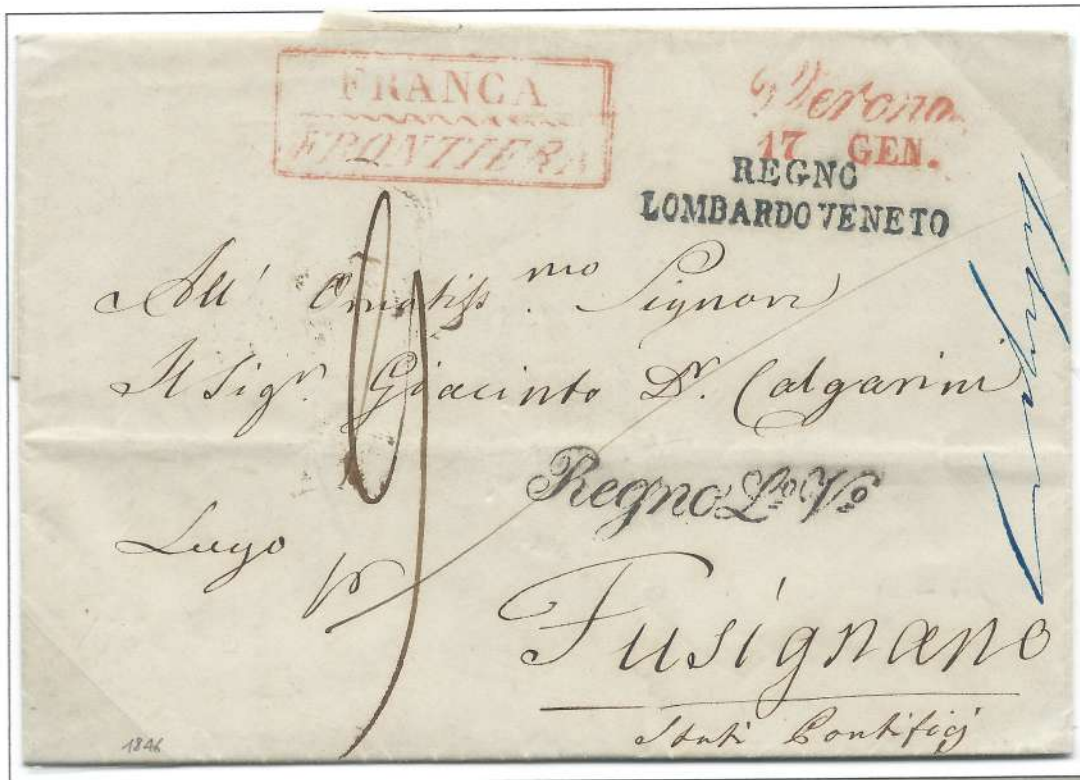 FRANCA
FRONTIERA
Verona
17 GEN.
REGNO
LOMBARDO VENETO
All' Ornatiss.mo Signore
Il Sigr. Giacinto Dr. Calgarini
Regno Lo. Vo.
Lugo
pr
Fusignano
Stati Pontificj
1846